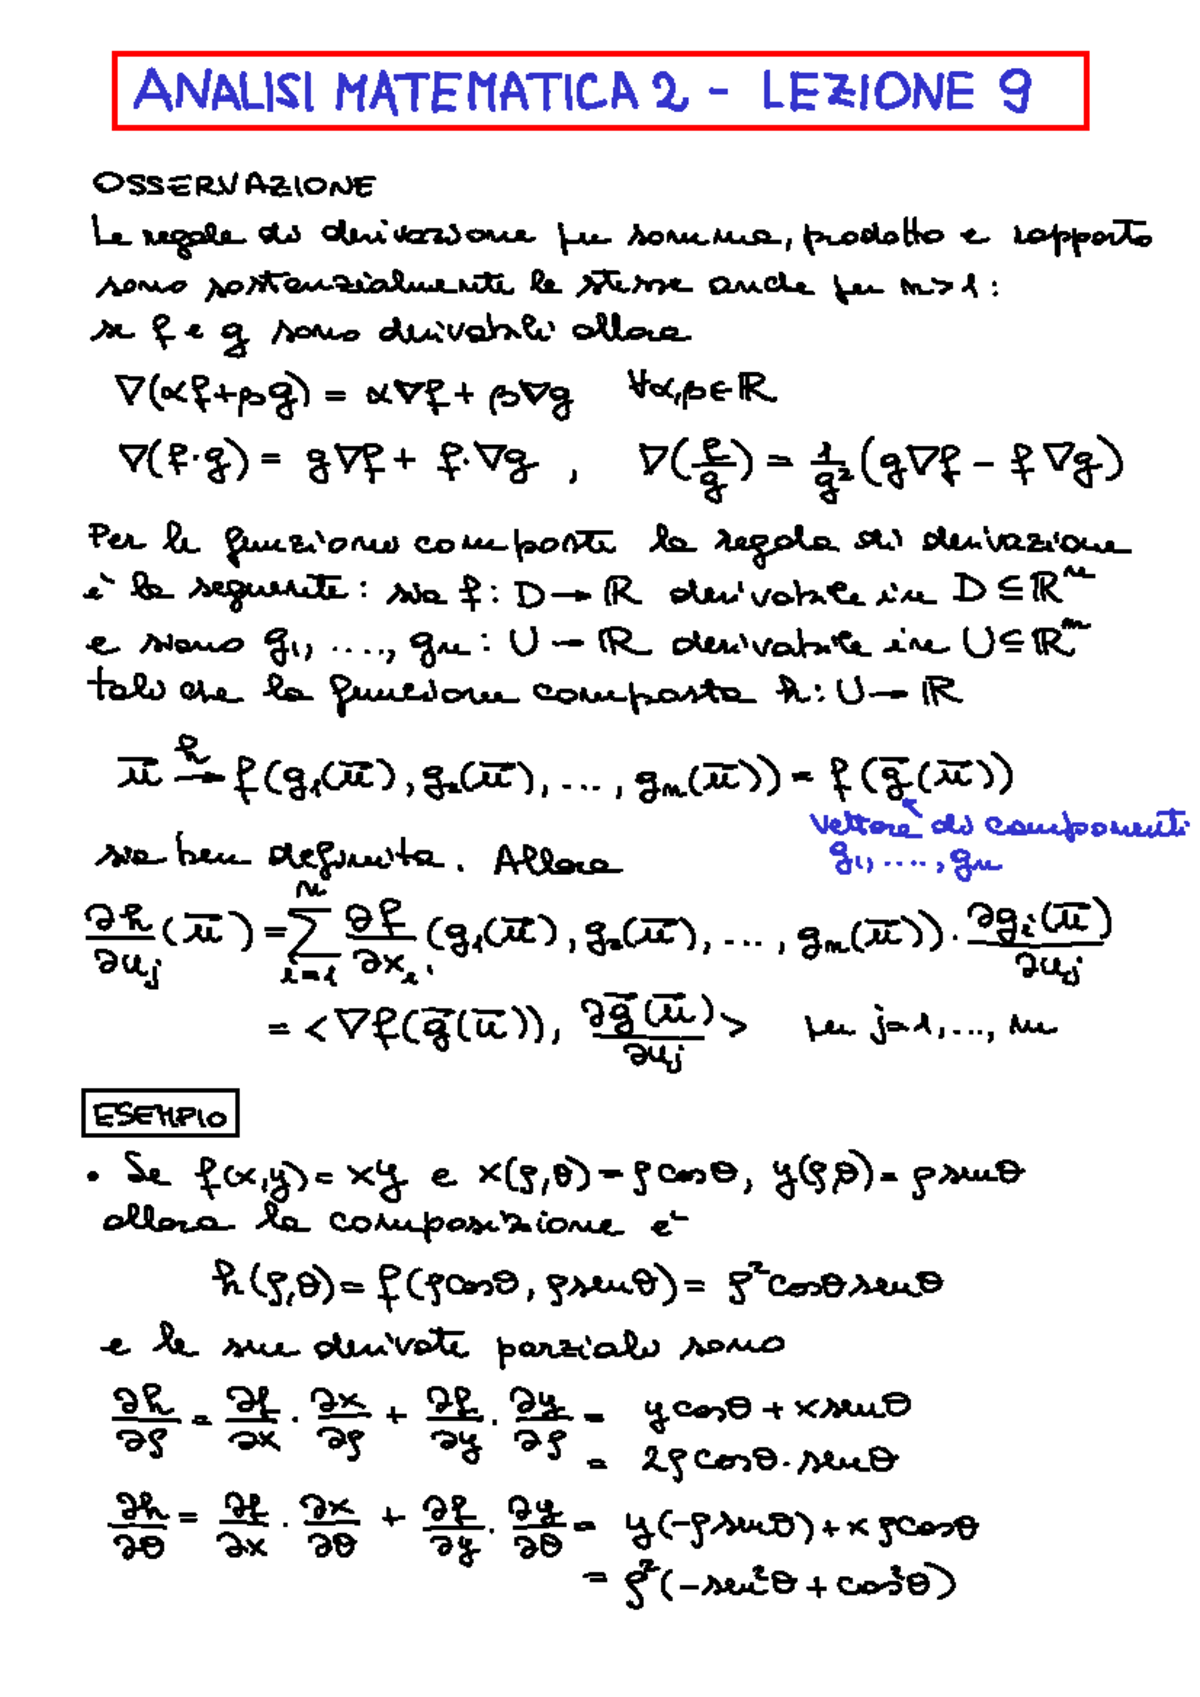 ANALISI MATEMATICA 2 - LEZIONE 9
OSSERVAZIONE
Le regole di derivazione per somma, prodotto e rapporto
sono sostanzialmente le stesse anche per m>1:
se f e g sono derivabili allora
∇(αf+βg) = α∇f + β∇g ∀α,β∈ℝ
∇(f·g) = g∇f + f·∇g , ∇(f/g) = 1/g² (g∇f − f∇g)
Per le funzioni composte la regola di derivazione
e' la seguente: sia f: D→ℝ derivabile in D⊆ℝⁿ
e siano g₁, ...., gₙ: U→ℝ derivabile in U⊆ℝᵐ
tali che la funzione composta h: U→ℝ
u̅ →ʰ f(g₁(u̅), g₂(u̅), ..., gₙ(u̅)) = f(g̅(u̅))
vettore di componenti
g₁, ...., gₙ
sia ben definita. Allora
∂h/∂uⱼ (u̅) = ∑ᵢ₌₁ⁿ ∂f/∂xᵢ (g₁(u̅), g₂(u̅), ..., gₙ(u̅)) · ∂gᵢ(u̅)/∂uⱼ
= <∇f(g̅(u̅)), ∂g̅(u̅)/∂uⱼ> per j=1,..., m
ESEMPIO
• Se f(x,y) = xy e x(ρ,θ) = ρcosθ, y(ρ,θ) = ρsenθ
allora la composizione e'
h(ρ,θ) = f(ρcosθ, ρsenθ) = ρ²cosθsenθ
e le sue derivate parziali sono
∂h/∂ρ = ∂f/∂x · ∂x/∂ρ + ∂f/∂y · ∂y/∂ρ = ycosθ + xsenθ
= 2ρcosθ·senθ
∂h/∂θ = ∂f/∂x · ∂x/∂θ + ∂f/∂y · ∂y/∂θ = y(−ρsenθ) + xρcosθ
= ρ²(−sen²θ + cos²θ)